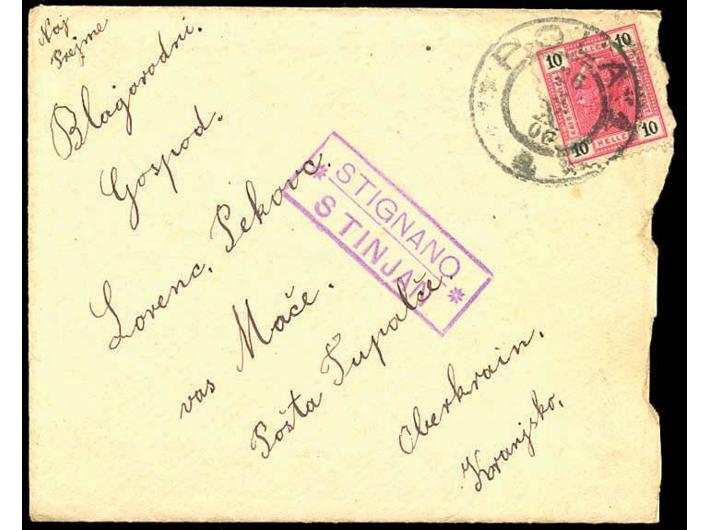 Naj
Prejme
Blagorodni.
Gospod.
Lorenc. Pekovc.
vas Mače.
Pošta Tupalče.
Oberkrain.
Kranjsko.
* STIGNANO
STINJAN *
POLA
06
10 10
HELLER
10 10